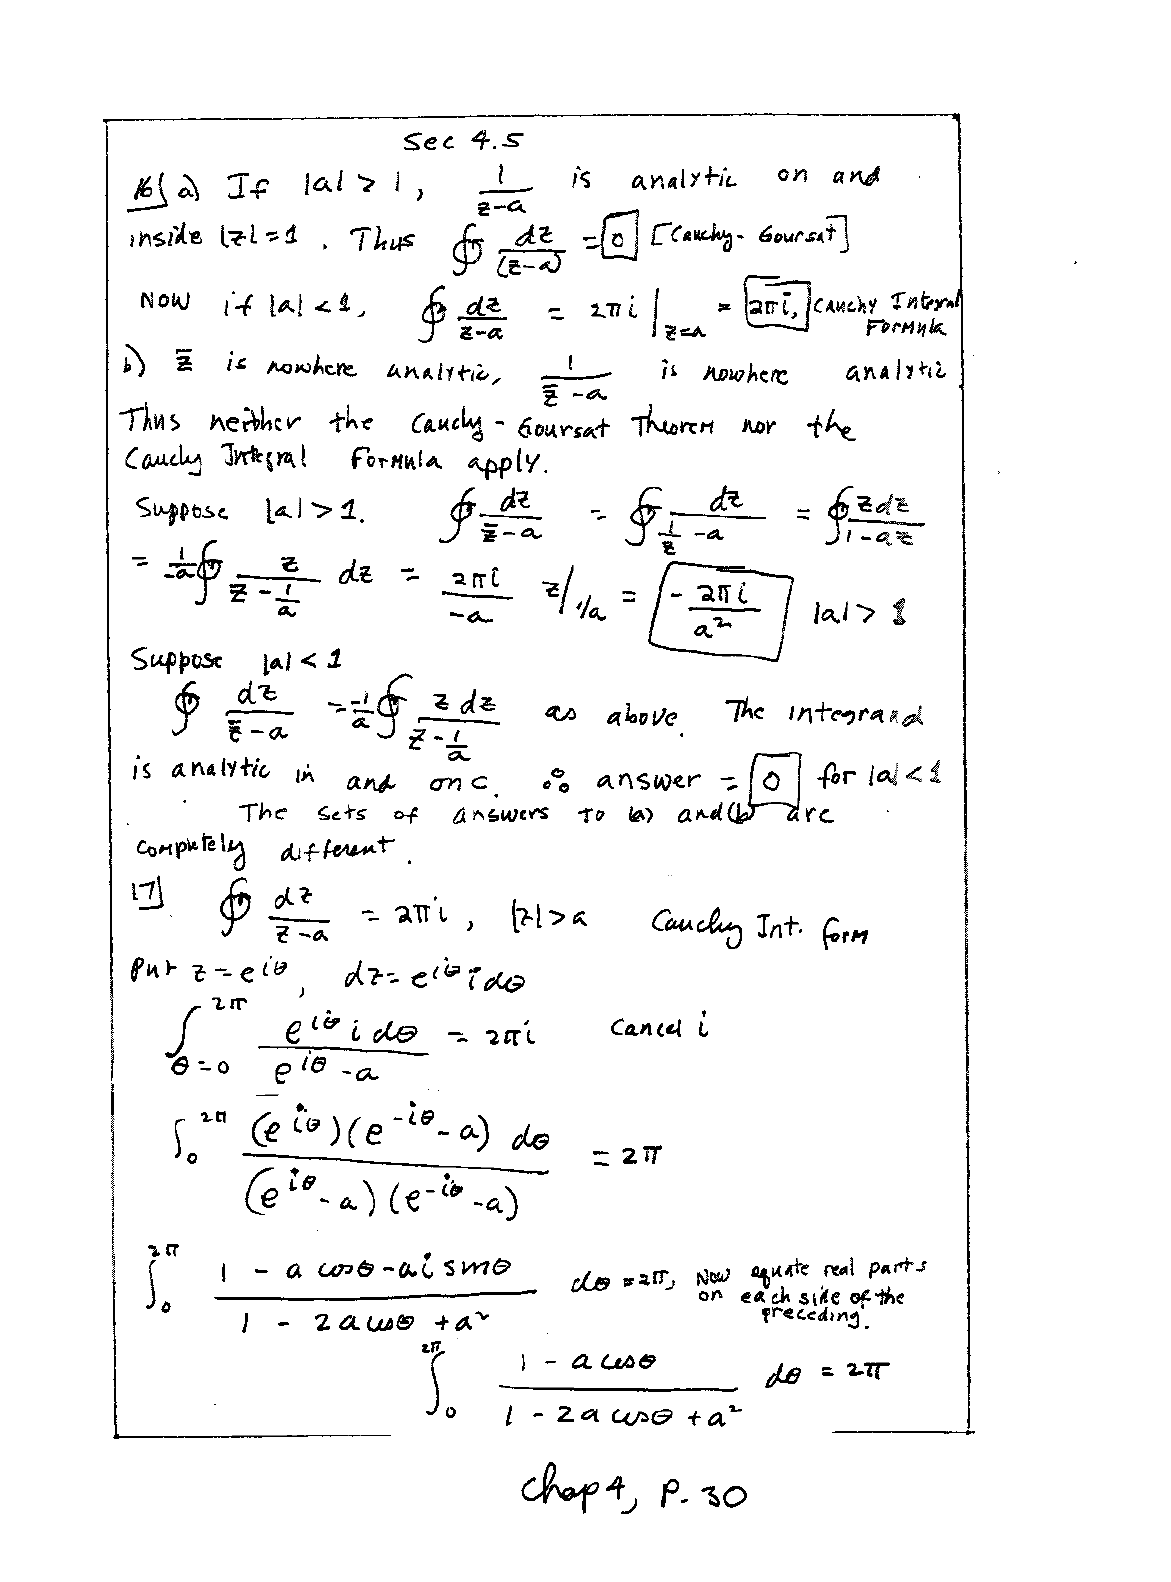 Sec 4.5
16] a) If |a| > 1, 1/(z-a) is analytic on and
inside |z|=1. Thus ∮ dz/(z-a) = 0 [Cauchy-Goursat]
Now if |a|<1, ∮ dz/(z-a) = 2πi |_{z=a} = 2πi, Cauchy Integral Formula
b) z̄ is nowhere analytic, 1/(z̄-a) is nowhere analytic
Thus neither the Cauchy-Goursat Theorem nor the
Cauchy Integral Formula apply.
Suppose |a|>1. ∮ dz/(z̄-a) = ∮ dz/(1/z - a) = ∮ z dz/(1-az)
= 1/-a ∮ z/(z - 1/a) dz = 2πi/-a z|_{1/a} = -2πi/a² |a|>1
Suppose |a|<1
∮ dz/(z̄-a) = -1/a ∮ z dz/(z - 1/a) as above. The integrand
is analytic in and on C. ∴ answer = 0 for |a|<1
The sets of answers to (a) and (b) are
completely different.
17] ∮ dz/(z-a) = 2πi, |z|>a Cauchy Int. form
Put z=e^{iθ}, dz=e^{iθ} i dθ
∫_{θ=0}^{2π} e^{iθ} i dθ/(e^{iθ}-a) = 2πi Cancel i
∫_0^{2π} (e^{iθ})(e^{-iθ}-a) dθ/((e^{iθ}-a)(e^{-iθ}-a)) = 2π
∫_0^{2π} (1 - a cosθ - a i sinθ)/(1 - 2a cosθ + a²) dθ = 2π, Now equate real parts on each side of the preceding.
∫_0^{2π} (1 - a cosθ)/(1 - 2a cosθ + a²) dθ = 2π
Chap 4, P. 30